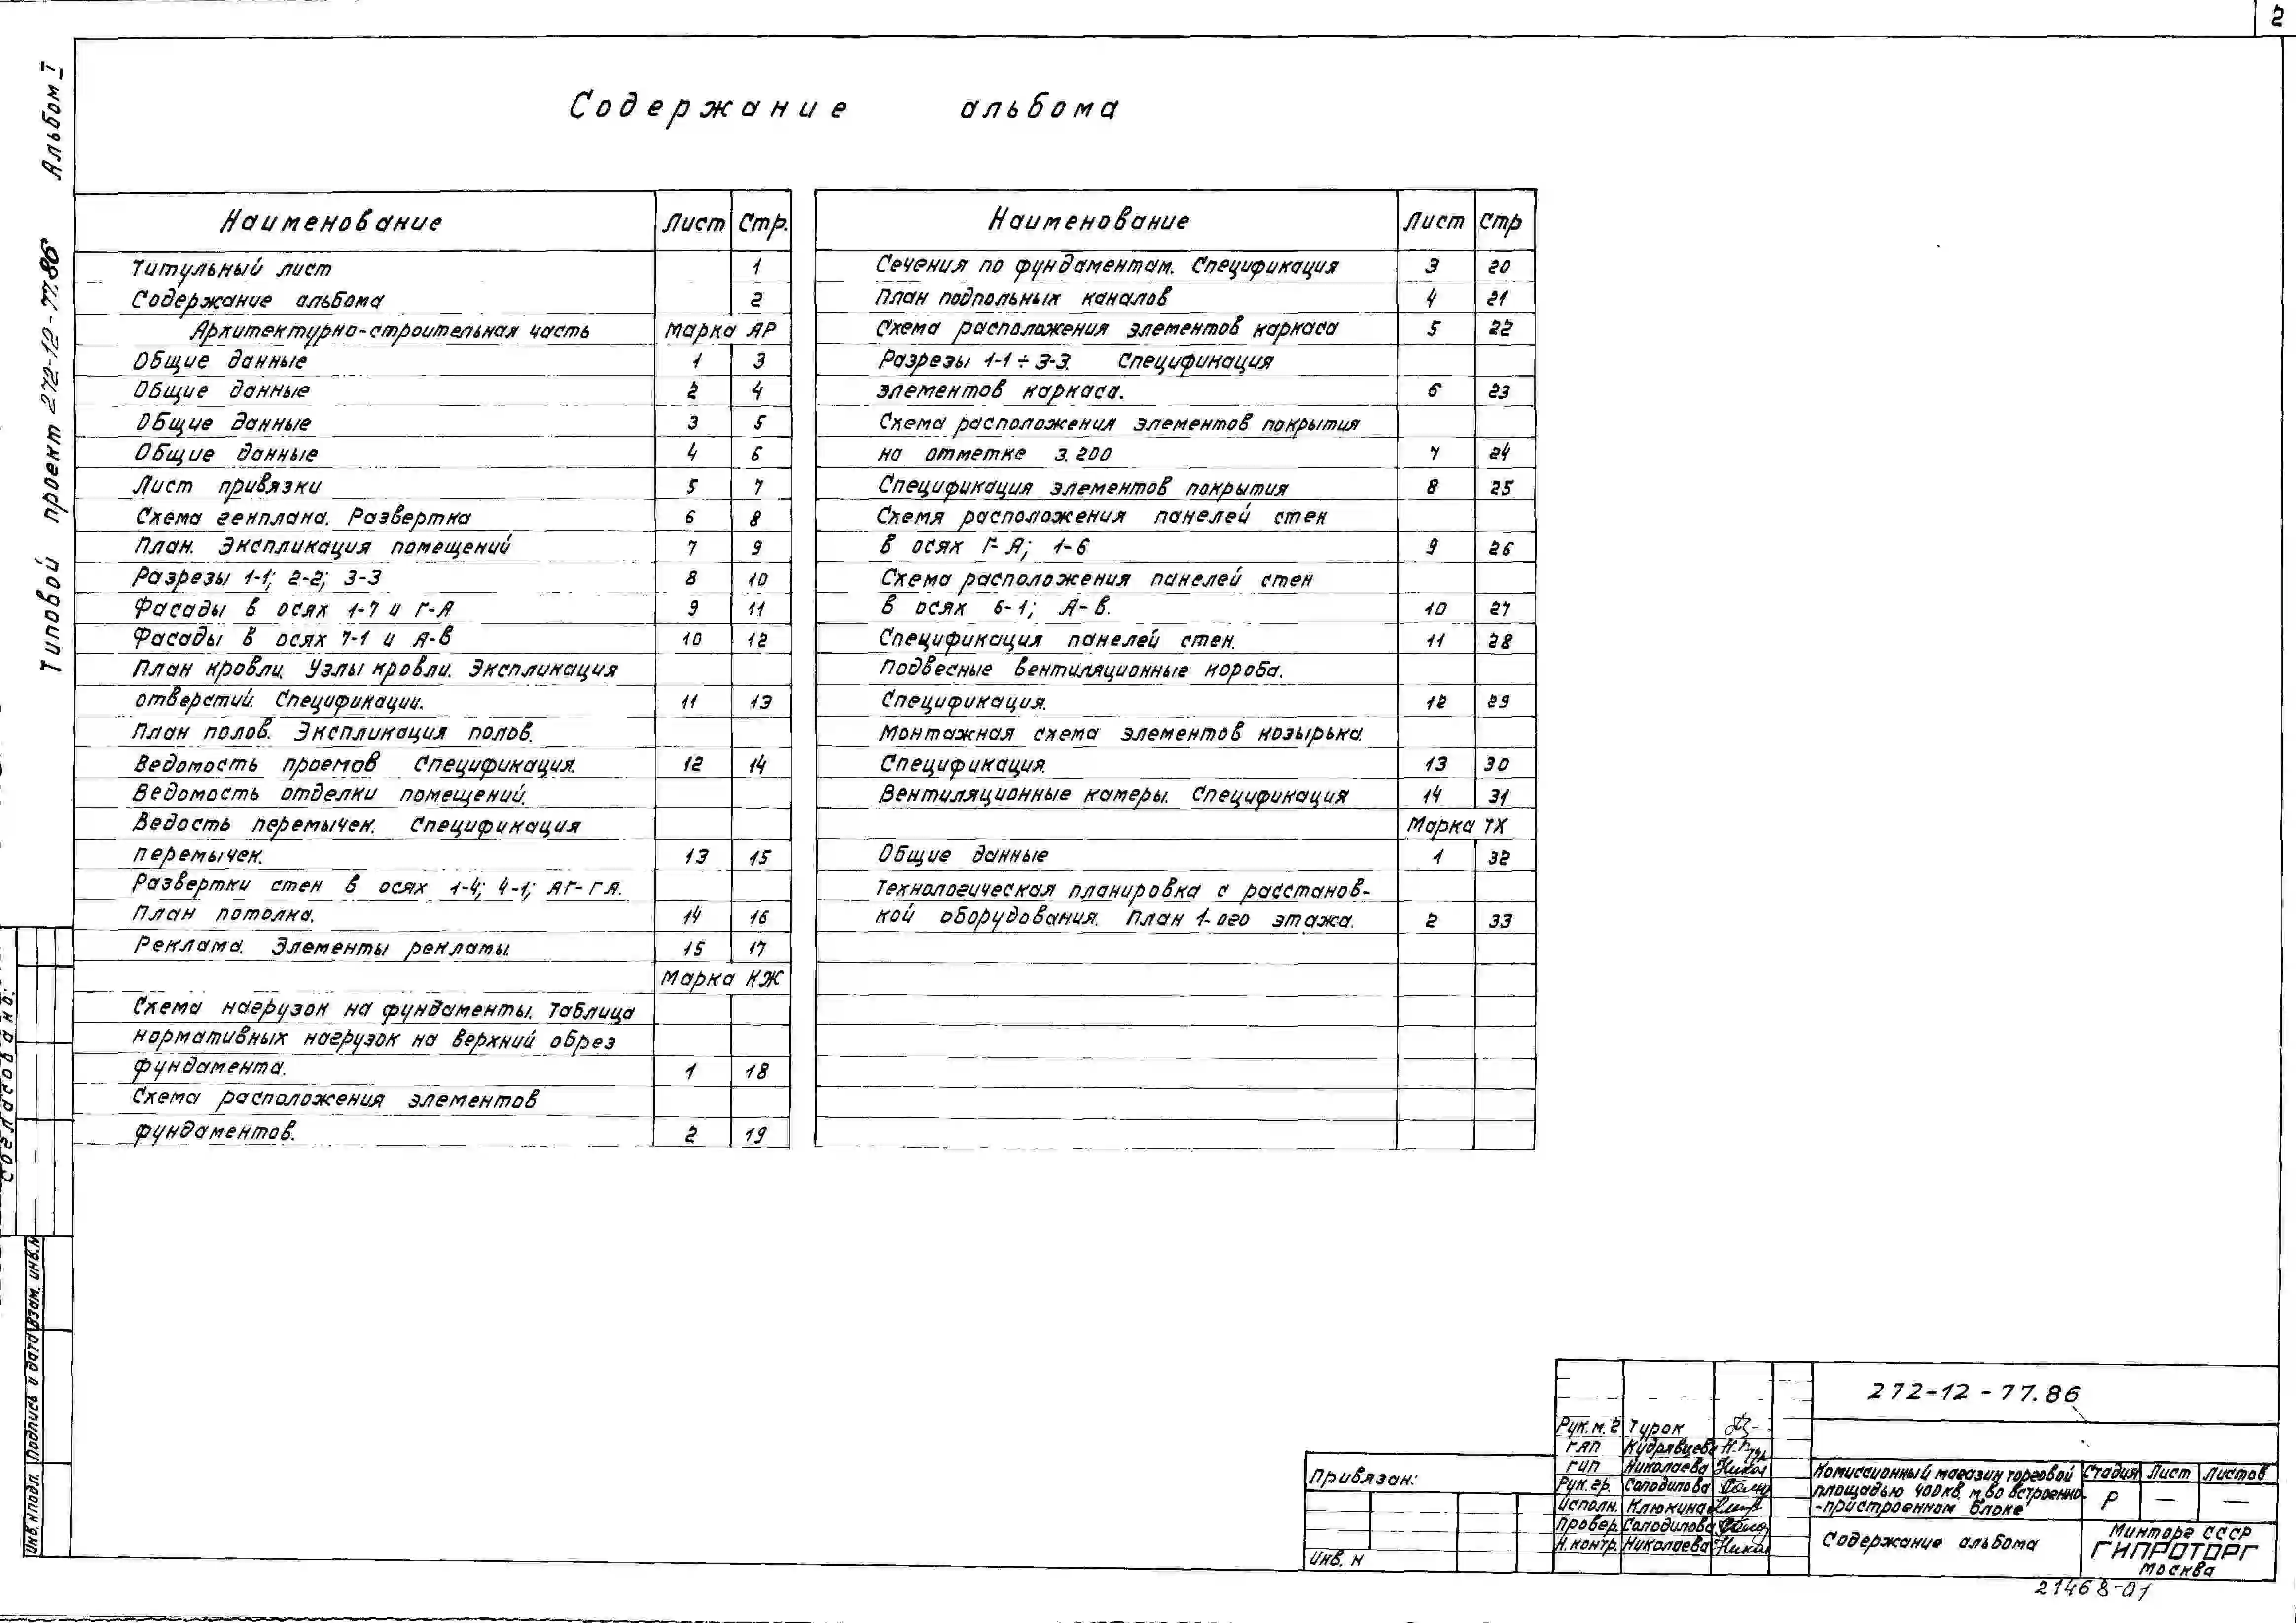 2
Альбом I
Типовой проект 272-12-77.86
Содержание альбома
Наименование Лист Стр.
Титульный лист 1
Содержание альбома 2
Архитектурно-строительная часть Марка АР
Общие данные 1 3
Общие данные 2 4
Общие данные 3 5
Общие данные 4 6
Лист привязки 5 7
Схема генплана. Развертка 6 8
План. Экспликация помещений 7 9
Разрезы 1-1; 2-2; 3-3 8 10
Фасады в осях 1-7 и Г-А 9 11
Фасады в осях 7-1 и А-В 10 12
План кровли. Узлы кровли. Экспликация
отверстий. Спецификации. 11 13
План полов. Экспликация полов.
Ведомость проемов Спецификация. 12 14
Ведомость отделки помещений.
Ведость перемычек. Спецификация
перемычек. 13 15
Развертки стен в осях 1-4; 4-1; АГ-ГА.
План потолка. 14 16
Реклама. Элементы рекламы. 15 17
Марка КЖ
Схема нагрузок на фундаменты. Таблица
нормативных нагрузок на верхний обрез
фундамента. 1 18
Схема расположения элементов
фундаментов. 2 19
Наименование Лист Стр
Сечения по фундаментам. Спецификация 3 20
План подпольных каналов 4 21
Схема расположения элементов каркаса 5 22
Разрезы 1-1÷3-3. Спецификация
элементов каркаса. 6 23
Схема расположения элементов покрытия
на отметке 3.200 7 24
Спецификация элементов покрытия 8 25
Схемя расположения панелей стен
в осях Г-А; 1-6 9 26
Схема расположения панелей стен
в осях 6-1; А-В. 10 27
Спецификация панелей стен. 11 28
Подвесные вентиляционные короба.
Спецификация. 12 29
Монтажная схема элементов козырька.
Спецификация. 13 30
Вентиляционные камеры. Спецификация 14 31
Марка ТХ
Общие данные 1 32
Технологическая планировка с расстанов-
кой оборудования. План 1-ого этажа. 2 33
Согласовано:
Взам. инв.N
Подпись и дата
Инв.N подл.
Привязан:
Инв. N
Рук.м.2 Турок
ГАП Кудрявцева
ГИП Николаева
Рук.гр. Солодилова
Исполн. Клюкина
Провер. Солодилова
Н.контр. Николаева
272-12-77.86
Комиссионный магазин торговой
площадью 400кв.м. во встроенно-
-пристроенном блоке
Стадия Лист Листов
Р — —
Содержание альбома
Минторг СССР
ГИПРОТОРГ
Москва
21468-01